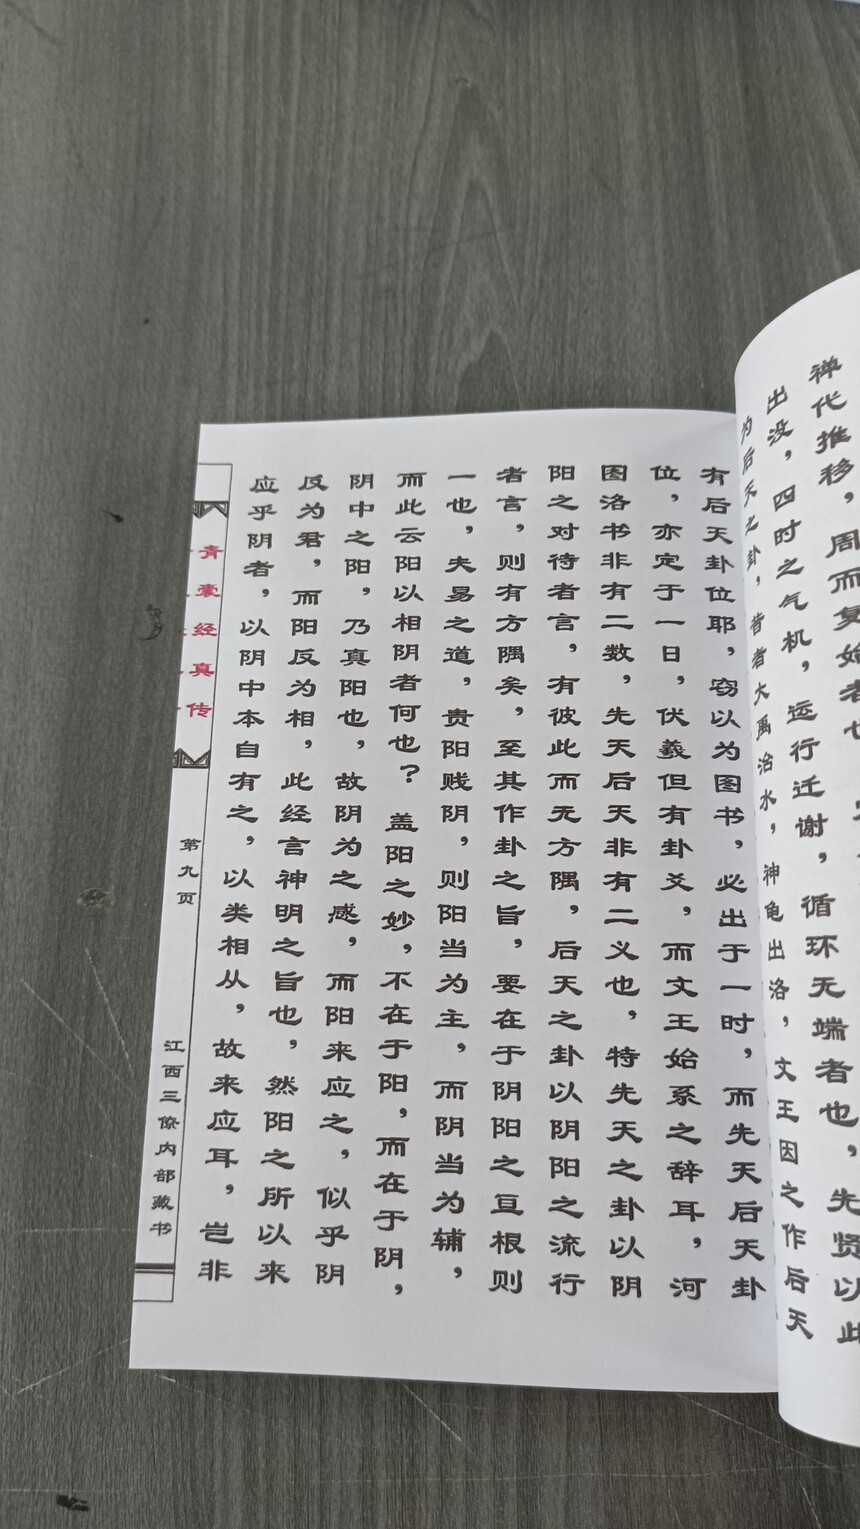 禅代推移，周而复始者也
出没，四时之气机，运行迁谢，循环无端者也，先贤以此
为后天之卦，昔者大禹治水，神龟出洛，文王因之作后天
有后天卦位耶，窃以为图书，必出于一时，而先天后天卦
位，亦定于一日，伏羲但有卦爻，而文王始系之辞耳，河
图洛书非有二数，先天后天非有二义也，特先天之卦以阴
阳之对待者言，有彼此而无方隅，后天之卦以阴阳之流行
者言，则有方隅矣，至其作卦之旨，要在于阴阳之亘根则
一也，夫易之道，贵阳贱阴，则阳当为主，而阴当为辅，
而此云阳以相阴者何也？盖阳之妙，不在于阳，而在于阴，
阴中之阳，乃真阳也，故阴为之感，而阳来应之，似乎阴
反为君，而阳反为相，此经言神明之旨也，然阳之所以来
应乎阴者，以阴中本自有之，以类相从，故来应耳，岂非
青囊经真传
第九页
江西三僚内部藏书